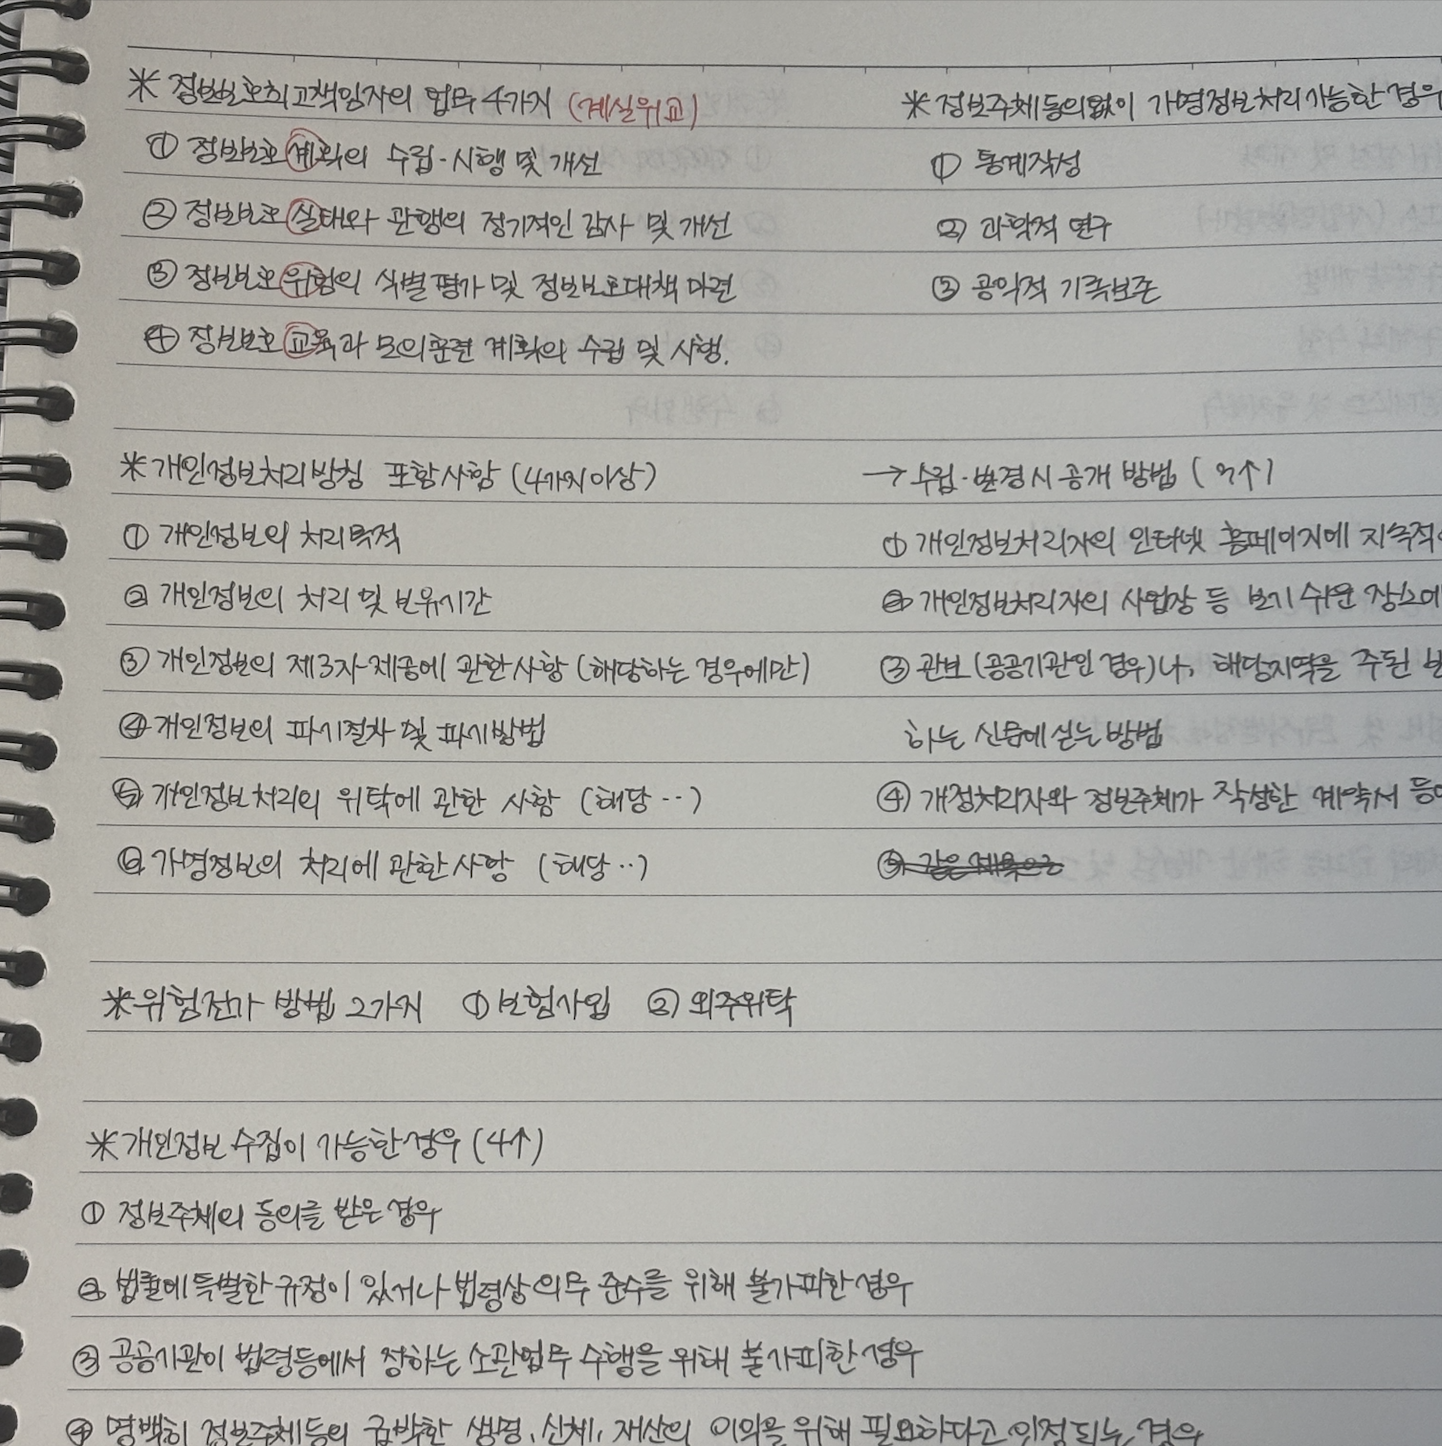 * 정보보호최고책임자의 업무 4가지 (계실위교)
① 정보보호 계획의 수립·시행 및 개선
② 정보보호 실태와 관행의 정기적인 감사 및 개선
③ 정보보호 위험의 식별 평가 및 정보보호대책 마련
④ 정보보호 교육과 모의훈련 계획의 수립 및 시행.
* 정보주체 동의없이 가명정보처리가능한 경우
① 통계작성
② 과학적 연구
③ 공익적 기록보존
* 개인정보처리방침 포함사항 (4가지 이상)
① 개인정보의 처리목적
② 개인정보의 처리 및 보유기간
③ 개인정보의 제3자 제공에 관한사항 (해당하는 경우에만)
④ 개인정보의 파기절차 및 파기방법
⑤ 개인정보처리의 위탁에 관한 사항 (해당··)
⑥ 가명정보의 처리에 관한사항 (해당··)
→ 수립·변경시 공개 방법 (3↑)
① 개인정보처리자의 인터넷 홈페이지에 지속적
② 개인정보처리자의 사업장 등 보기 쉬운 장소에
③ 관보(공공기관인 경우)나, 해당지역을 주된
하는 신문에 싣는 방법
④ 개정처리자와 정보주체가 작성한 계약서 등
⑤ 같은
* 위험전가 방법 2가지 ① 보험가입 ② 외주위탁
* 개인정보 수집이 가능한 경우 (4↑)
① 정보주체의 동의를 받은 경우
② 법률에 특별한 규정이 있거나 법령상 의무 준수를 위해 불가피한 경우
③ 공공기관이 법령등에서 정하는 소관업무 수행을 위해 불가피한 경우
④ 명백히 정보주체등의 급박한 생명, 신체, 재산의 이익을 위해 필요하다고 인정되는 경우